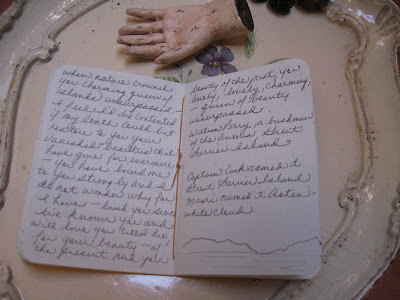 when nature crowned
you charming queen of
islands unsurpassed -
I feel I'd die contented
if my death could but
restore to you your
vanished beauties that
have gone for evermore
- you have bound me
to you strongly and I
do not wonder why for
I have - loved you since
I've known you and
will love you until I die
for your beauty - of
the present and your
beauty of the past, you
lonely, lovely, charming,
- queen of beauty
unsurpassed.
William Perry, a bushman
of the Aurelia Street
Barrier Island
Captain Cook named it
Great Barrier Island
Maori named it Aotea -
white cloud